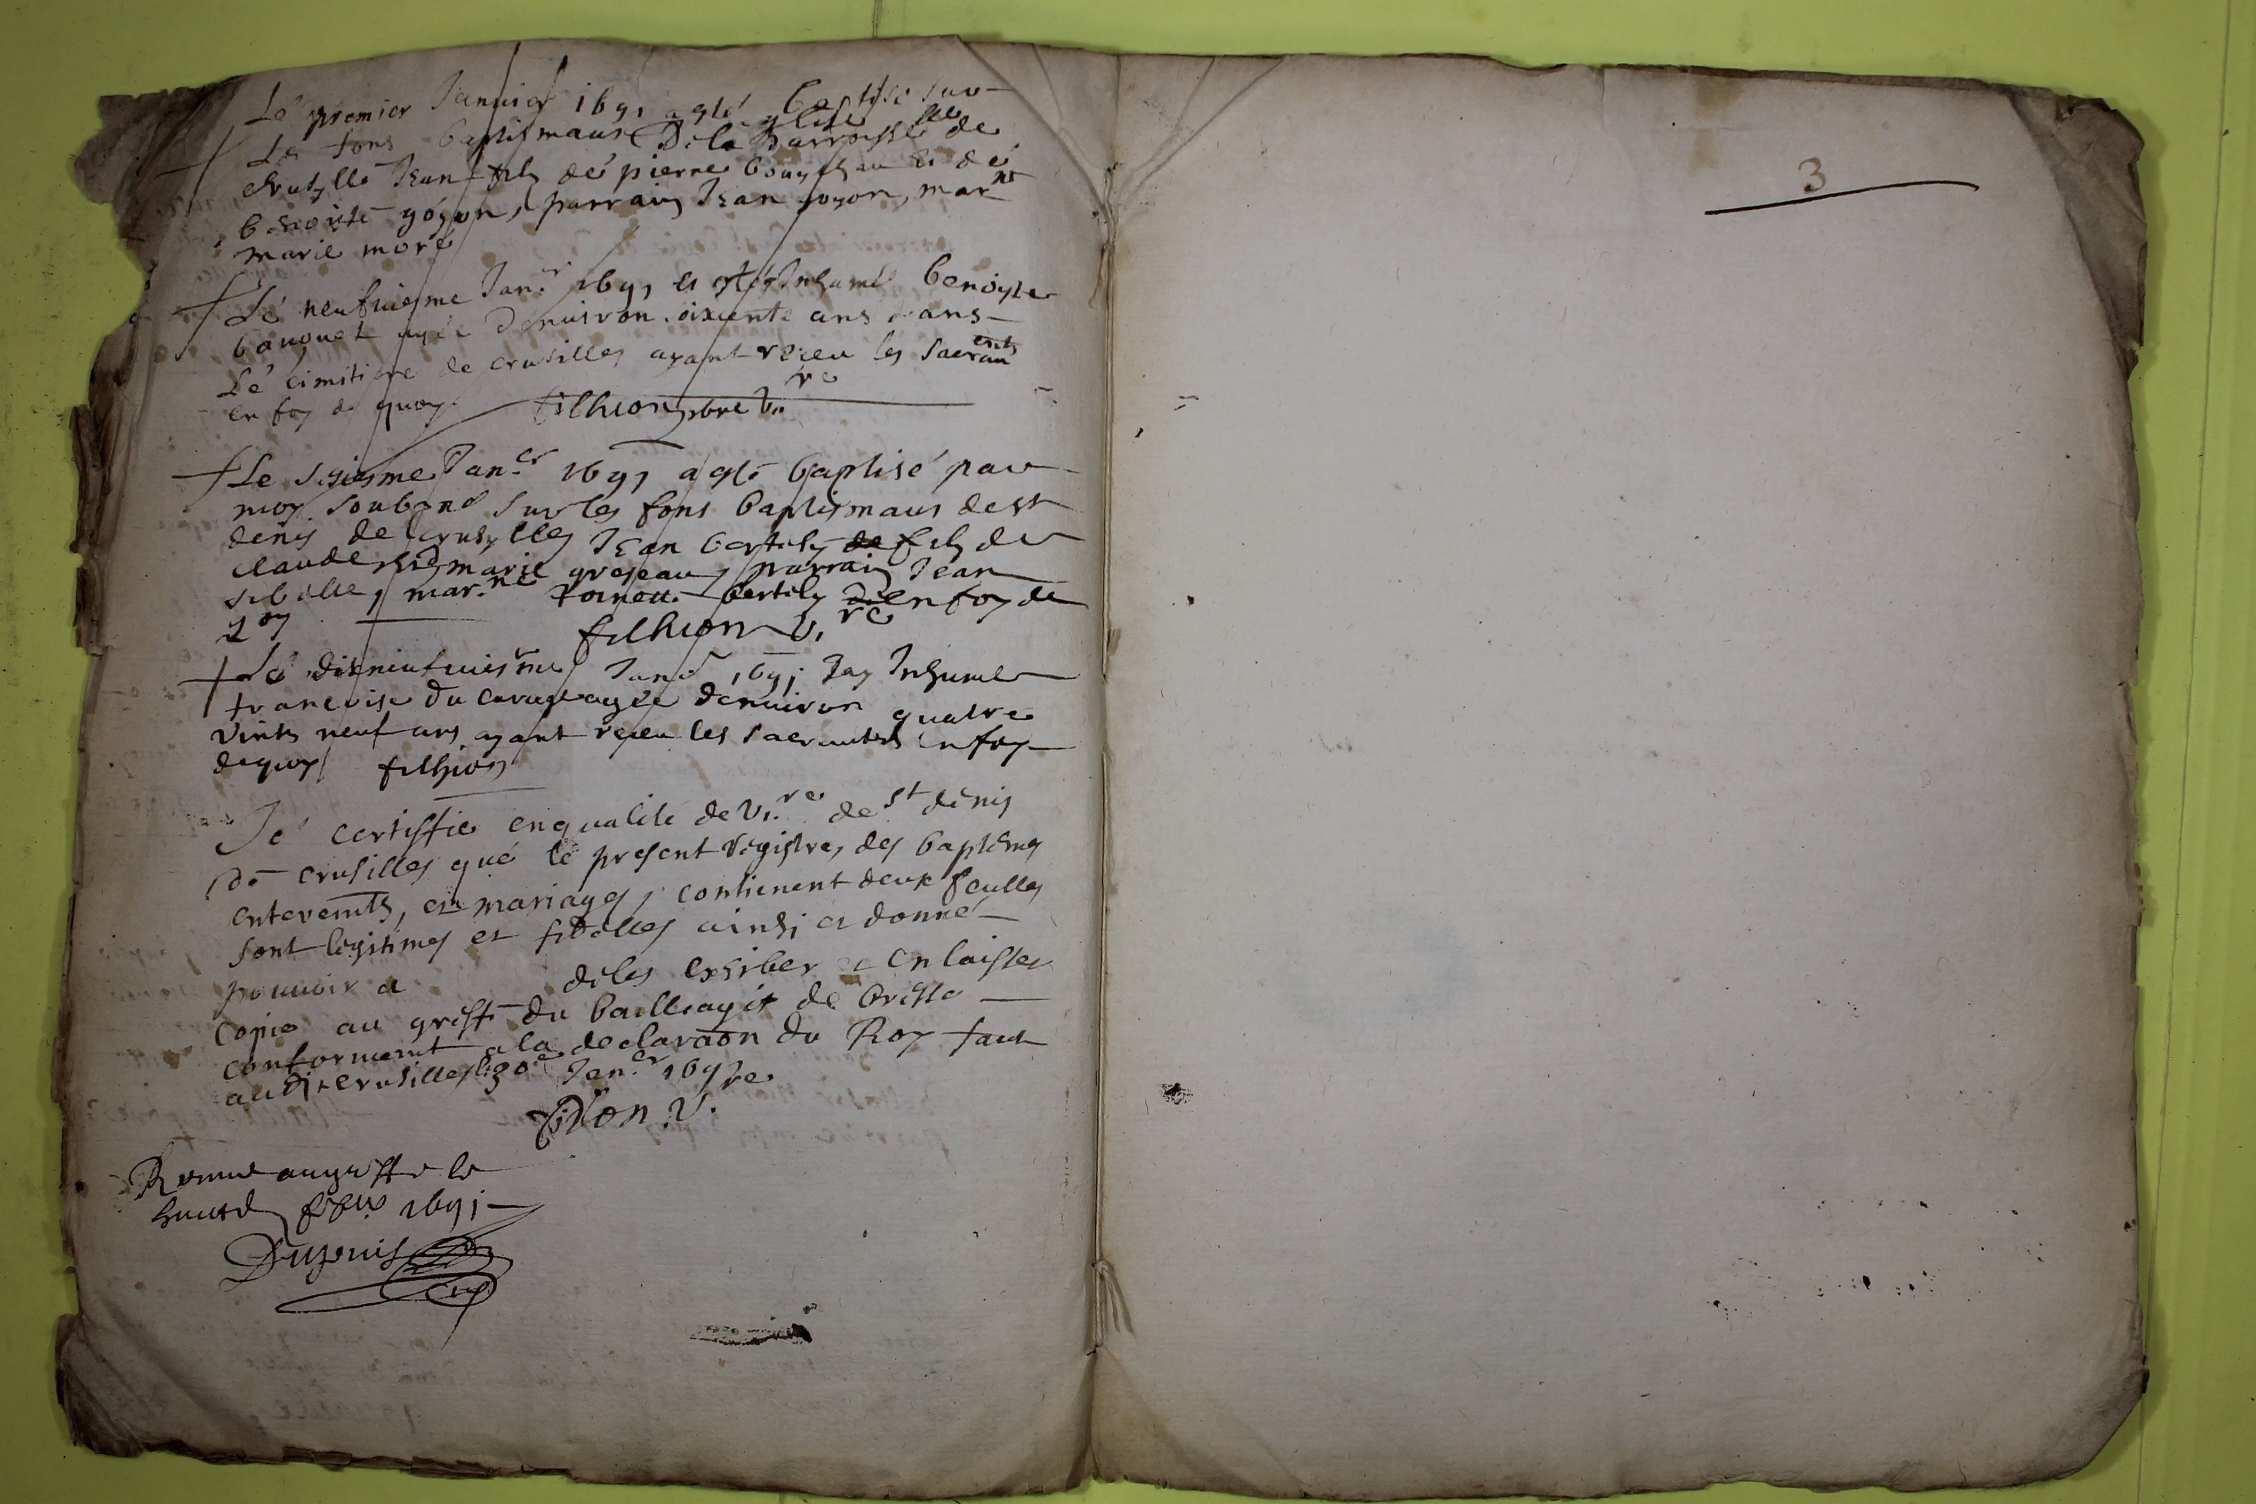 Le premier Janvier 1691 a esté baptisé sur
Les fons baptismaux De la parroisse de
crusylle Jean fils de pierre et de
benoiste goyon, parrain Jean goyon, mar.ne
marie moré
Le neufuiesme Jan.r 1691 et esté Inhumé benoyste
agée denuiron ans dans
Le cimitiere de crusilles ayant receu les sacramts
en foy de quoy filhion pbre v.re
Le Jan.er 1691 a esté baptisé par
moy soubsné sur les fons baptismaux de st
denis de crusylles Jean bertely de fils de
claude et marie greseau, parrain Jean
mar.ne toinette bertely de en foy de
qoy filhion v.re
Le disneufuiesme Jan.r 1691 Jay Inhumé
francoise du agée denuiron quatre
vints neuf ans ayant receu les sacramts en foy
de quoy filhion
Je certiffie en qualité de v.re de st denis
de crusilles que le present registre, des baptemes
enteremts, et mariages, contienent deux feulles
sont legitimes et fidelles ainsi et donné
pouuoir a de les exhiber et en laisser
copie au greffe du bailliage de bresse
conformement a la declaraon du Roy fait
audit crusilles le 30e Jan.er 1691
filion v.
Remis au greffe le
huict 1691
Dupuis
3